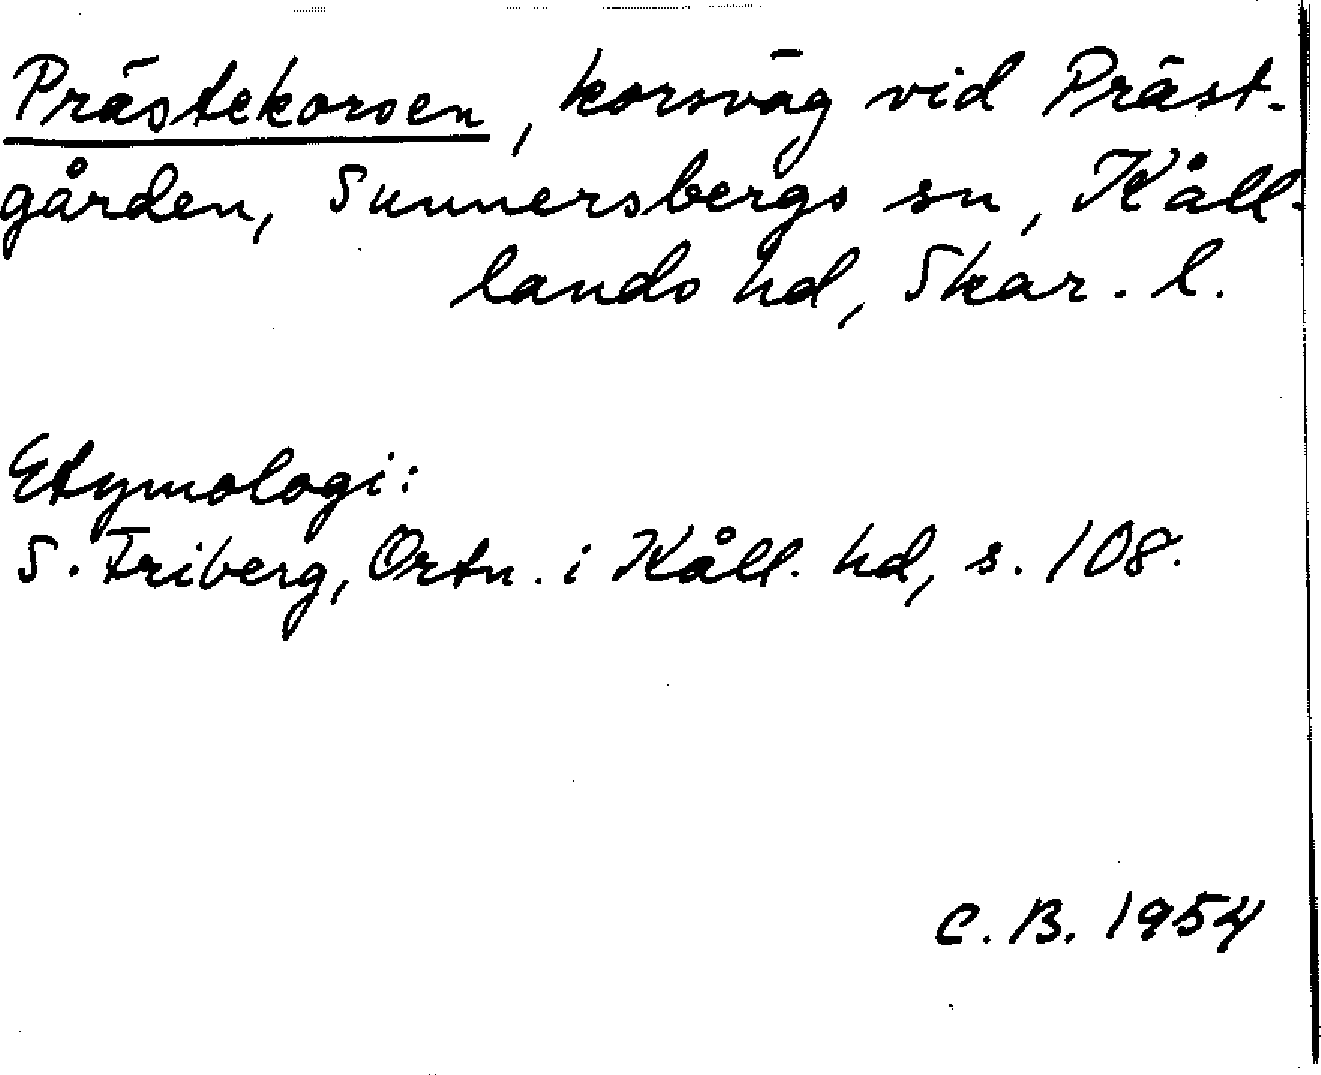 Prästekorsen, korsväg vid Präst-
gården, Sunnersbergs sn, Kåll-
lands hd, Skar. l.
Etymologi:
S. Friberg, Ortn. i Kåll. hd, s. 108.
C. B. 1954